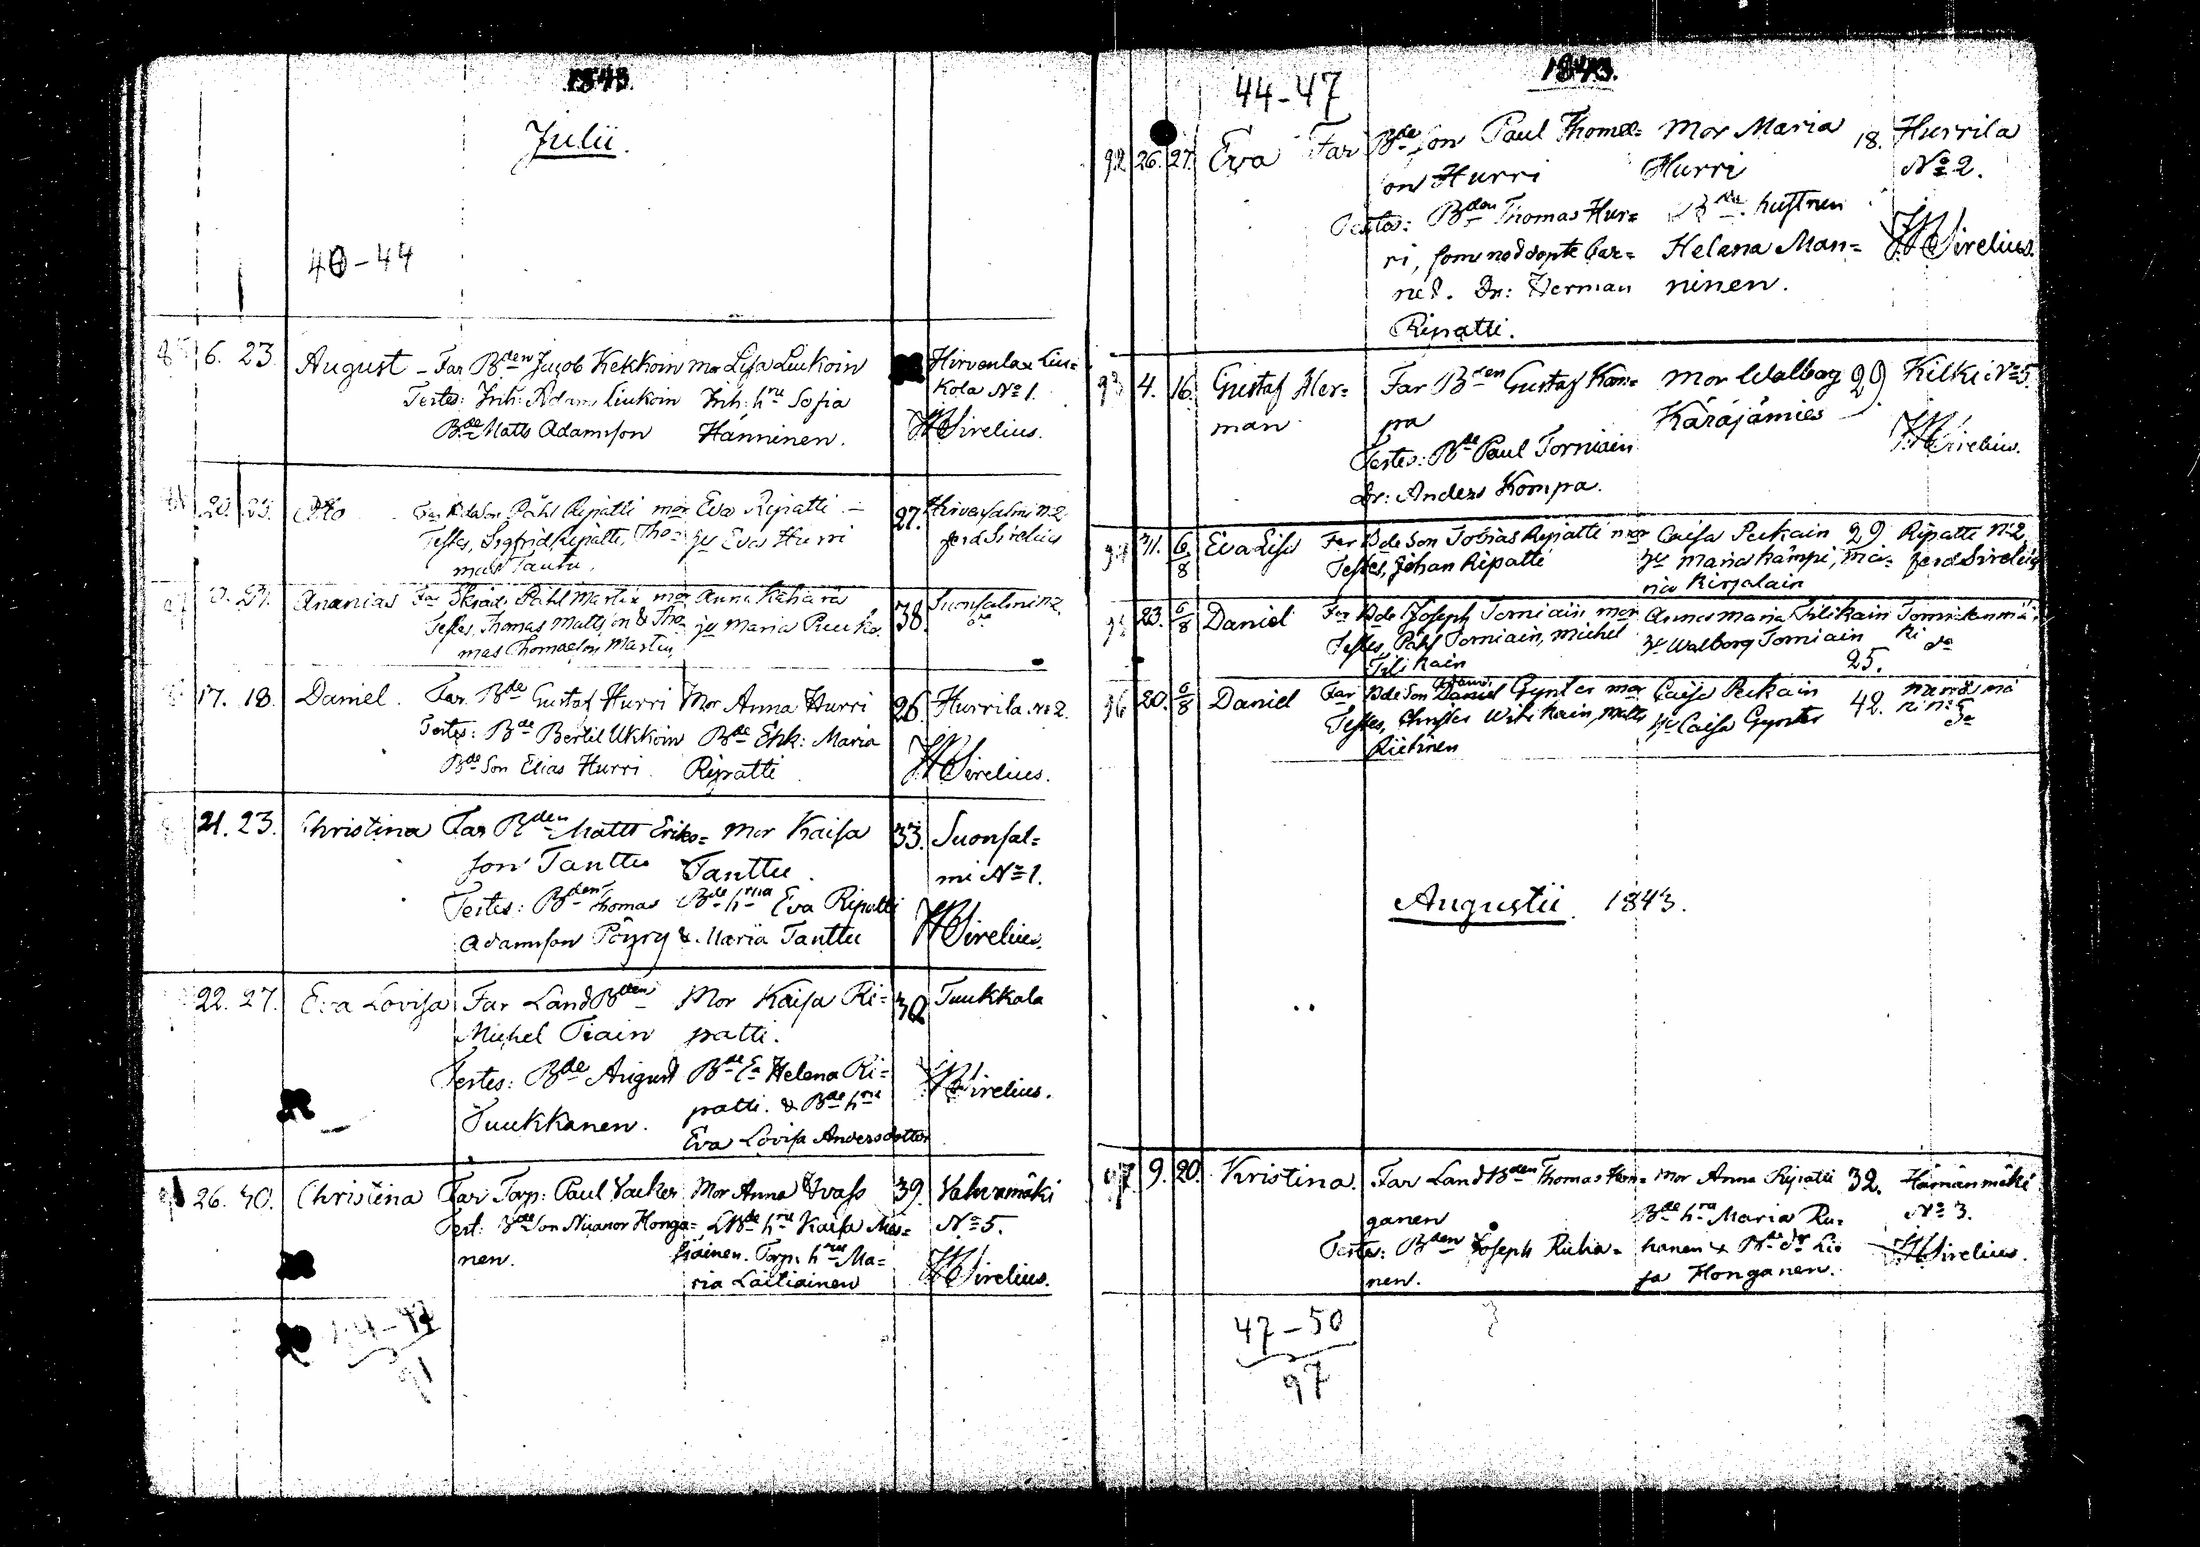 1843.
Julii.
40-44
6. 23. August - Far B^den Jacob Kekkoin mor Lisa Liukoin Hirvenlax Liu=
Testes: Inh: Adam Liukoin Inh: h^ru Sofia kola N^o 1.
B^de Matts Adamsson Hänninen. Sirelius.
20. 25. Otto Far B.de Son Påhl Ripatti mor Eva Ripatti 27. Hirvasalmi N:2
Testes, Sigfrid Ripatti, Tho- hu Eva Hurri ferd Sirelius
mas Tanttu.
Ananias Far Påhl Martin mor Anna 38. Suonsalmi N:2
Testes, Thomas Mattsson & Tho- hu Maria do
mas Thomasson Martin
17. 18. Daniel. Far B^de Gustaf Hurri Mor Anna Hurri 26. Hurrila N:2.
Testes: B^de Bertil Ukkoin B^de Enk: Maria
B^de Son Elias Hurri. Ripatti Sirelius.
21. 23. Christina Far B^den Matts Eriks= Mor Kaisa 33. Suonsal=
son Tanttu Tanttu. mi N^o 1.
Testes: B^den Thomas B^de h^ma Eva Ripatti
Adamsson Pöyry & Maria Tanttu Sirelius.
22. 27. Eva Lovisa Far Land B^den Mor Kaisa Ri= 30 Tuukkala
Michel Tiain patti.
Testes: B^de August B^de E^a Helena Ri= Sirelius.
Tuukkanen. patti. & B^de h^ru
Eva Lovisa Andersdotter
26. 30. Christina Far Torp: Paul Vauker Mor Anna 39. Vahvamäki
Test: B^de Son Nicanor Honga= LB^de h^ru Kaisa N^o 5.
nen. Torp: h^ru Ma=
ria Laitiainen Sirelius.
44-47
91
1843.
44-47
92 26. 27. Eva Far B^de Son Paul Thomas= Mor Maria 18. Hurrila
son Hurri Hurri N^o 2.
Testes: B^den Thomas Hur= B^de. hustrun
ri, som nöddöpte bar= Helena Man= Sirelius.
net. Dr: Herman ninen.
Ripatti.
93 4. 16. Gustaf Her= Far B^den Gustaf Kom= Mor Walborg 29 Kilkki N^o 5.
man pa Käräjämies
Testes: B^de Paul Torniain Sirelius.
Dr: Anders Kompa.
94 31. 6/8 Eva Lisa Far B.de Son Tobias Ripatti mor Caisa Pukain 29 Ripatti N:2
Testes, Johan Ripatti hu Maria Kämpi, Ma= ferd Sirelius
ria Kirjalain
95 23. 6/8 Daniel Far B.de Joseph Torniain mor Anna Maria Tilikain
Testes, Påhl Torniain, Michel hu Walborg Torniain ki do
Tilikain 25.
96 20. 6/8 Daniel Far B.de Son Adam Gynter mor Caisa Pukain
Testes, Christer Wilikain, Matts hu Caisa Gynter 42. ki N:5
Riekinen do
Augustii. 1843.
97 9. 20. Kristina. Far Land B^den Thomas Hon= Mor Anna Ripatti 32. Hämänmäki
ganen B^de h^ru Maria Ru= N^o 3.
Testes: B^den Joseph Riekin= hanen & B^de dr Li= Sirelius.
nen. sa Honganen.
47-50
97